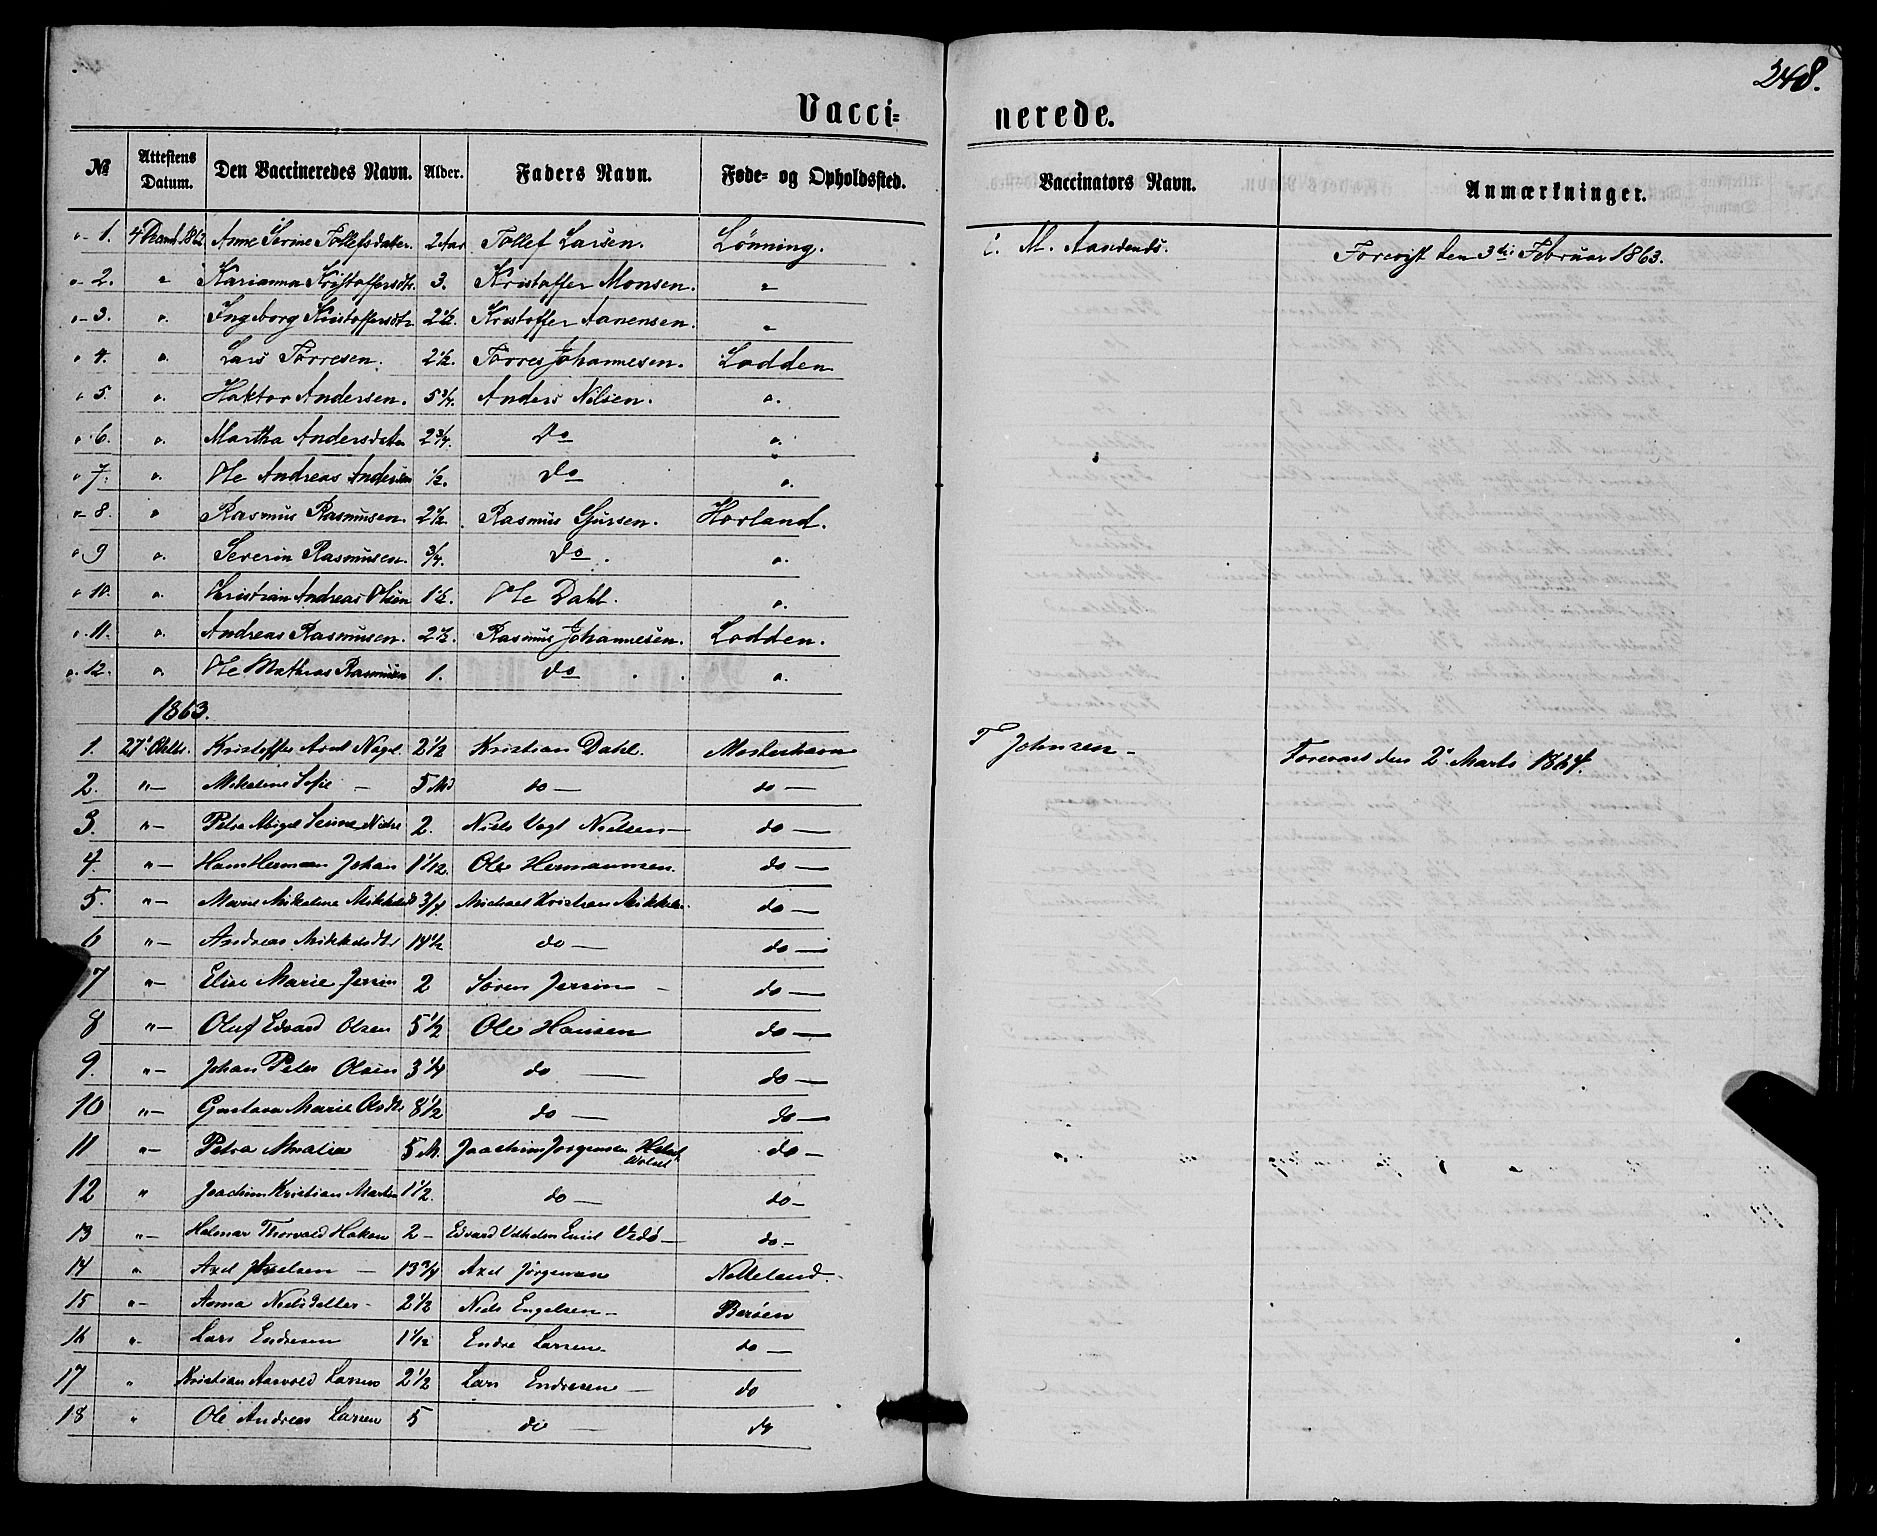 248.
Vacci= nerede.
№ Attestens Datum. Den Vaccineredes Navn. Alder. Faders Navn. Føde= og Opholdssted. Vaccinators Navn. Anmærkninger.
" 1. 4 Decemb. 1862 Anne Serine Tollefsdater. 2 Aar Tollef Larsen. Lönning. M. Aandends. Forevist den 3die Februar 1863.
" 2. " Karianna Kristoffersdtr. 3. Kristoffer Monsen. "
" 3. " Ingeborg Kristoffersdtr 2 1/2. Kristoffer Aanensen. "
" 4. " Lars Torresen. 2 1/2. Torres Johannesen. Lodden
" 5. " Haktor Andersen. 5 3/4. Anders Nilsen. "
" 6. " Martha Andersdater 2 3/4. Do "
" 7. " Ole Andreas Andersen 1/2. Do "
" 8. " Rasmus Rasmusen. 2 1/2. Rasmus Sjursen. Horland.
" 9 " Severin Rasmusen. 3/4. Do. "
" 10. " Kristian Andreas Olsen 1 1/2. Ole Dahl. "
" 11. " Andreas Rasmusen. 2 1/2. Rasmus Johannesen. Lodden.
" 12. " Ole Mathias Rasmusen 1. Do "
1863.
1. 27' Octbr. Kristoffer Arnt Nagel 2 1/2 Kristian Dahl. Mosterhavn T Johnsen - Forevist den 2' Marts 1864.
2. "- Mikaline Sofie - 5 Md do - do -
3. "- Petra Abigel Serine 2. Niels Vogt Nielsen - do -
4. "- Hans Herman Johan 1 1/12 Ole Hermannsen. do -
5. "- Marie Mikaline Mikkelsd 3/4 Michael Kristian Mikkels. do -
6 "- Andreas Mikkelsdtr 14 1/2 do - do -
7 "- Elise Marie Jensen 2 Sören Jensen - do -
8 "- Oluf Edvard Olsen 5 1/2 Ole Hansen do -
9. "- Johan Peter Olsen 3 1/4 do - do -
10 "- Gustava Marie Olsdtr 8 1/2 do - do -
11 "- Petra Amalia 5 M. Joachim Jörgensen do -
12 " Joachim Kristian Martin 1 1/2. do - do -
13 "- Halmar Thorvald Hakon 2 - Edvard Vilhelm Emil Vedö - do -
14 " Axel Axelsen - 13 3/4 Axel Jörgensen Nelleland.
15 "- Anna Nielsdatter - 2 1/2 Niels Engelsen - Beröen
16 ". Lars Endresen 1 1/12 Endre Larsen. do -
17 " Kristian Aasvold Larsen 2 1/2 Lars Endresen - do
18 " Ole Andreas Larsen 5 do - do